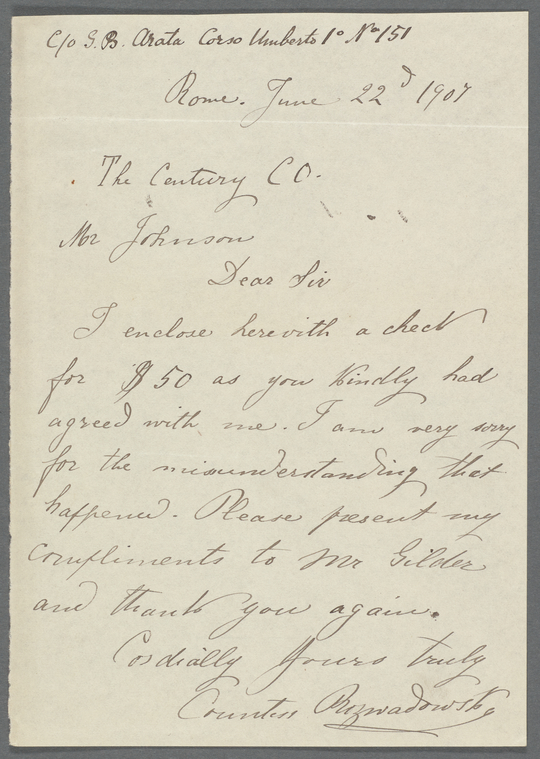 C/o G. B. Arata Corso Umberto 1° No 151
Rome. June 22d 1907
The Century CO.
Mr Johnson
Dear Sir
I enclose herewith a check
for $50 as you Kindly had
agreed with me. I am very sorry
for the misunderstanding that
happened. Please present my
compliments to Mr Gilder
and thank you again.
Cordially Yours truly
Countess Rozwadowska